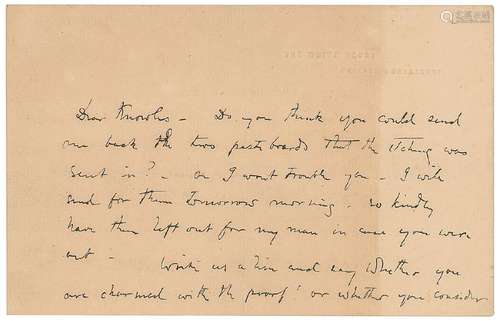 Dear Knowles – Do you think you could send
me back the two pasteboards that the Etching was
sent in? – or I wont trouble you – I will
send for them tomorrow morning – so kindly
have them left out for my man in case you were
out –      Write us a line and say whether you
are charmed with the proof! or whether you consider